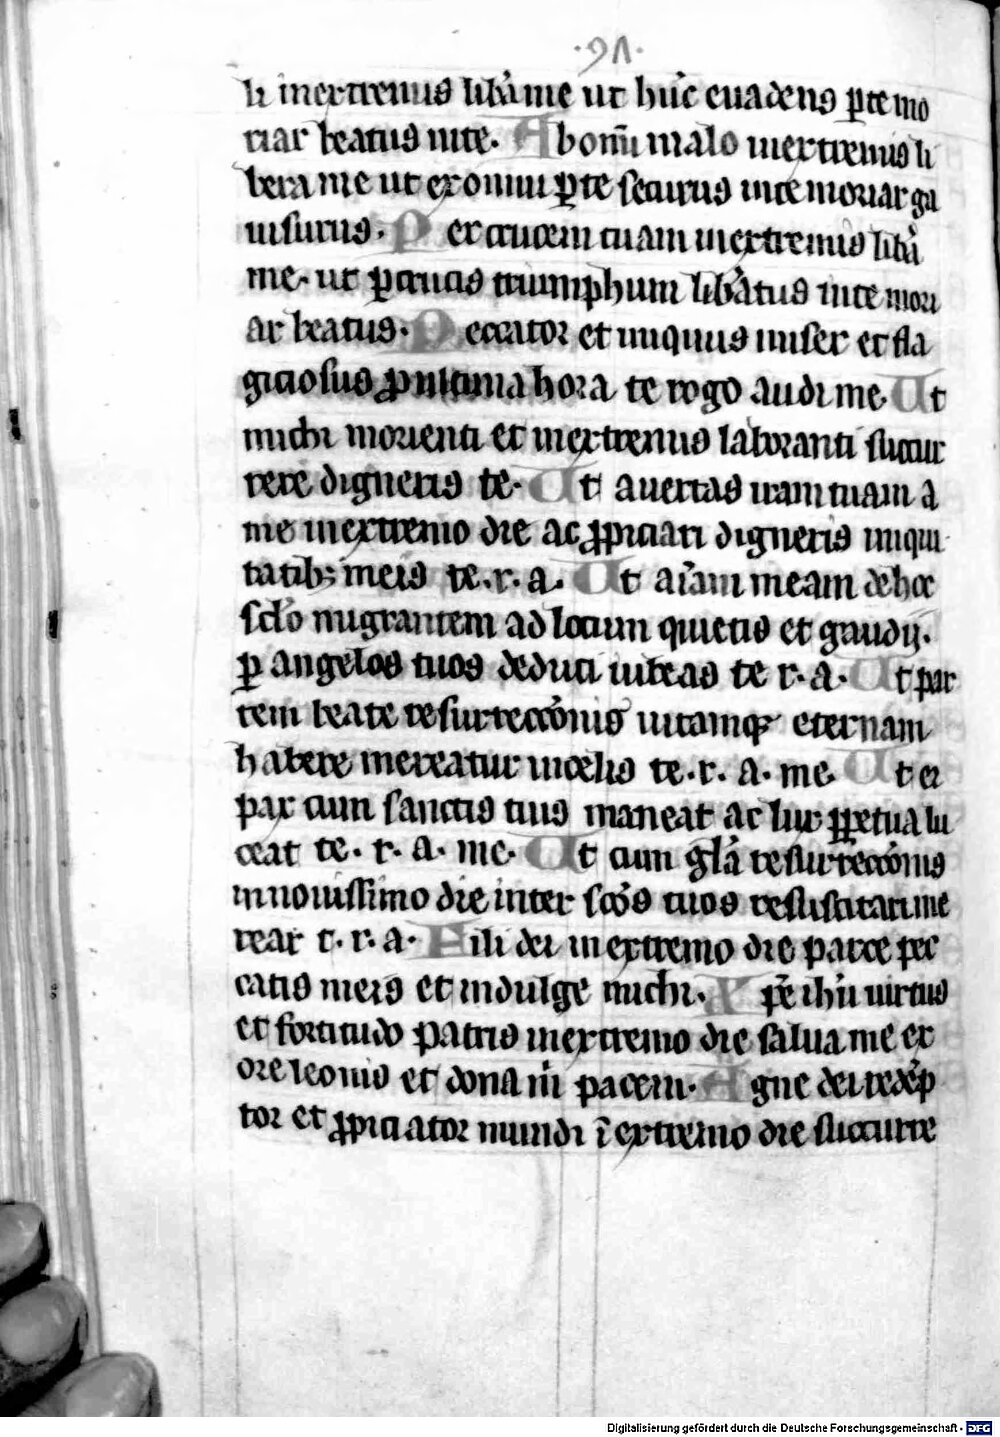 ·91·
li inextremis lib̉a me ut hu̅c euadens p̲te mo
riar beatus in te. A bom̅ malo inextremis li
bera me ut ex omni p̲te securus in te moriar ga
uisurus. P er crucem tuam inextremis lib̉a
me. ut p̲ crucis triumphum lib̉atus in te mori
ar beatus. P eccator et iniquus miser et fla
giciosus ꝓ ultima hora te rogo audi me. U t
michi morienti et inextremis laboranti succur
rere digneris te. U t auertas iram tuam a
me inextremo die ac ꝓpiciari digneris iniqui
tatib; meis te. r. a. U t ai̅am meam de hoc
sc̅lo migrantem ad locum quietis et gaudij.
p̲ angelos tuos deduci iubeas te r. a. U t par
tem beate resurrecc̅onis uitamqꝫ eternam
habere mereatur in celis te. r. a. me. U t ei
pax cum sanctis tuis maneat ac lux p̲petua lu
ceat te. r. a. me. U t cum gl̅a resurrecc̅onis
in nouissimo die inter sc̅os tuos resuscitari me
rear t. r. a. F ili dei in extremo die parce pec
catis meis et indulge michi. X pe̅ ihu̅ uirtus
et fortitudo patris inextremo die salua me ex
ore leonis et dona m̅ pacem. A gne dei rede̅p
tor et ꝓpiciator mundi i̅ extremo die succurre
Digitalisierung gefördert durch die Deutsche Forschungsgemeinschaft - DFG